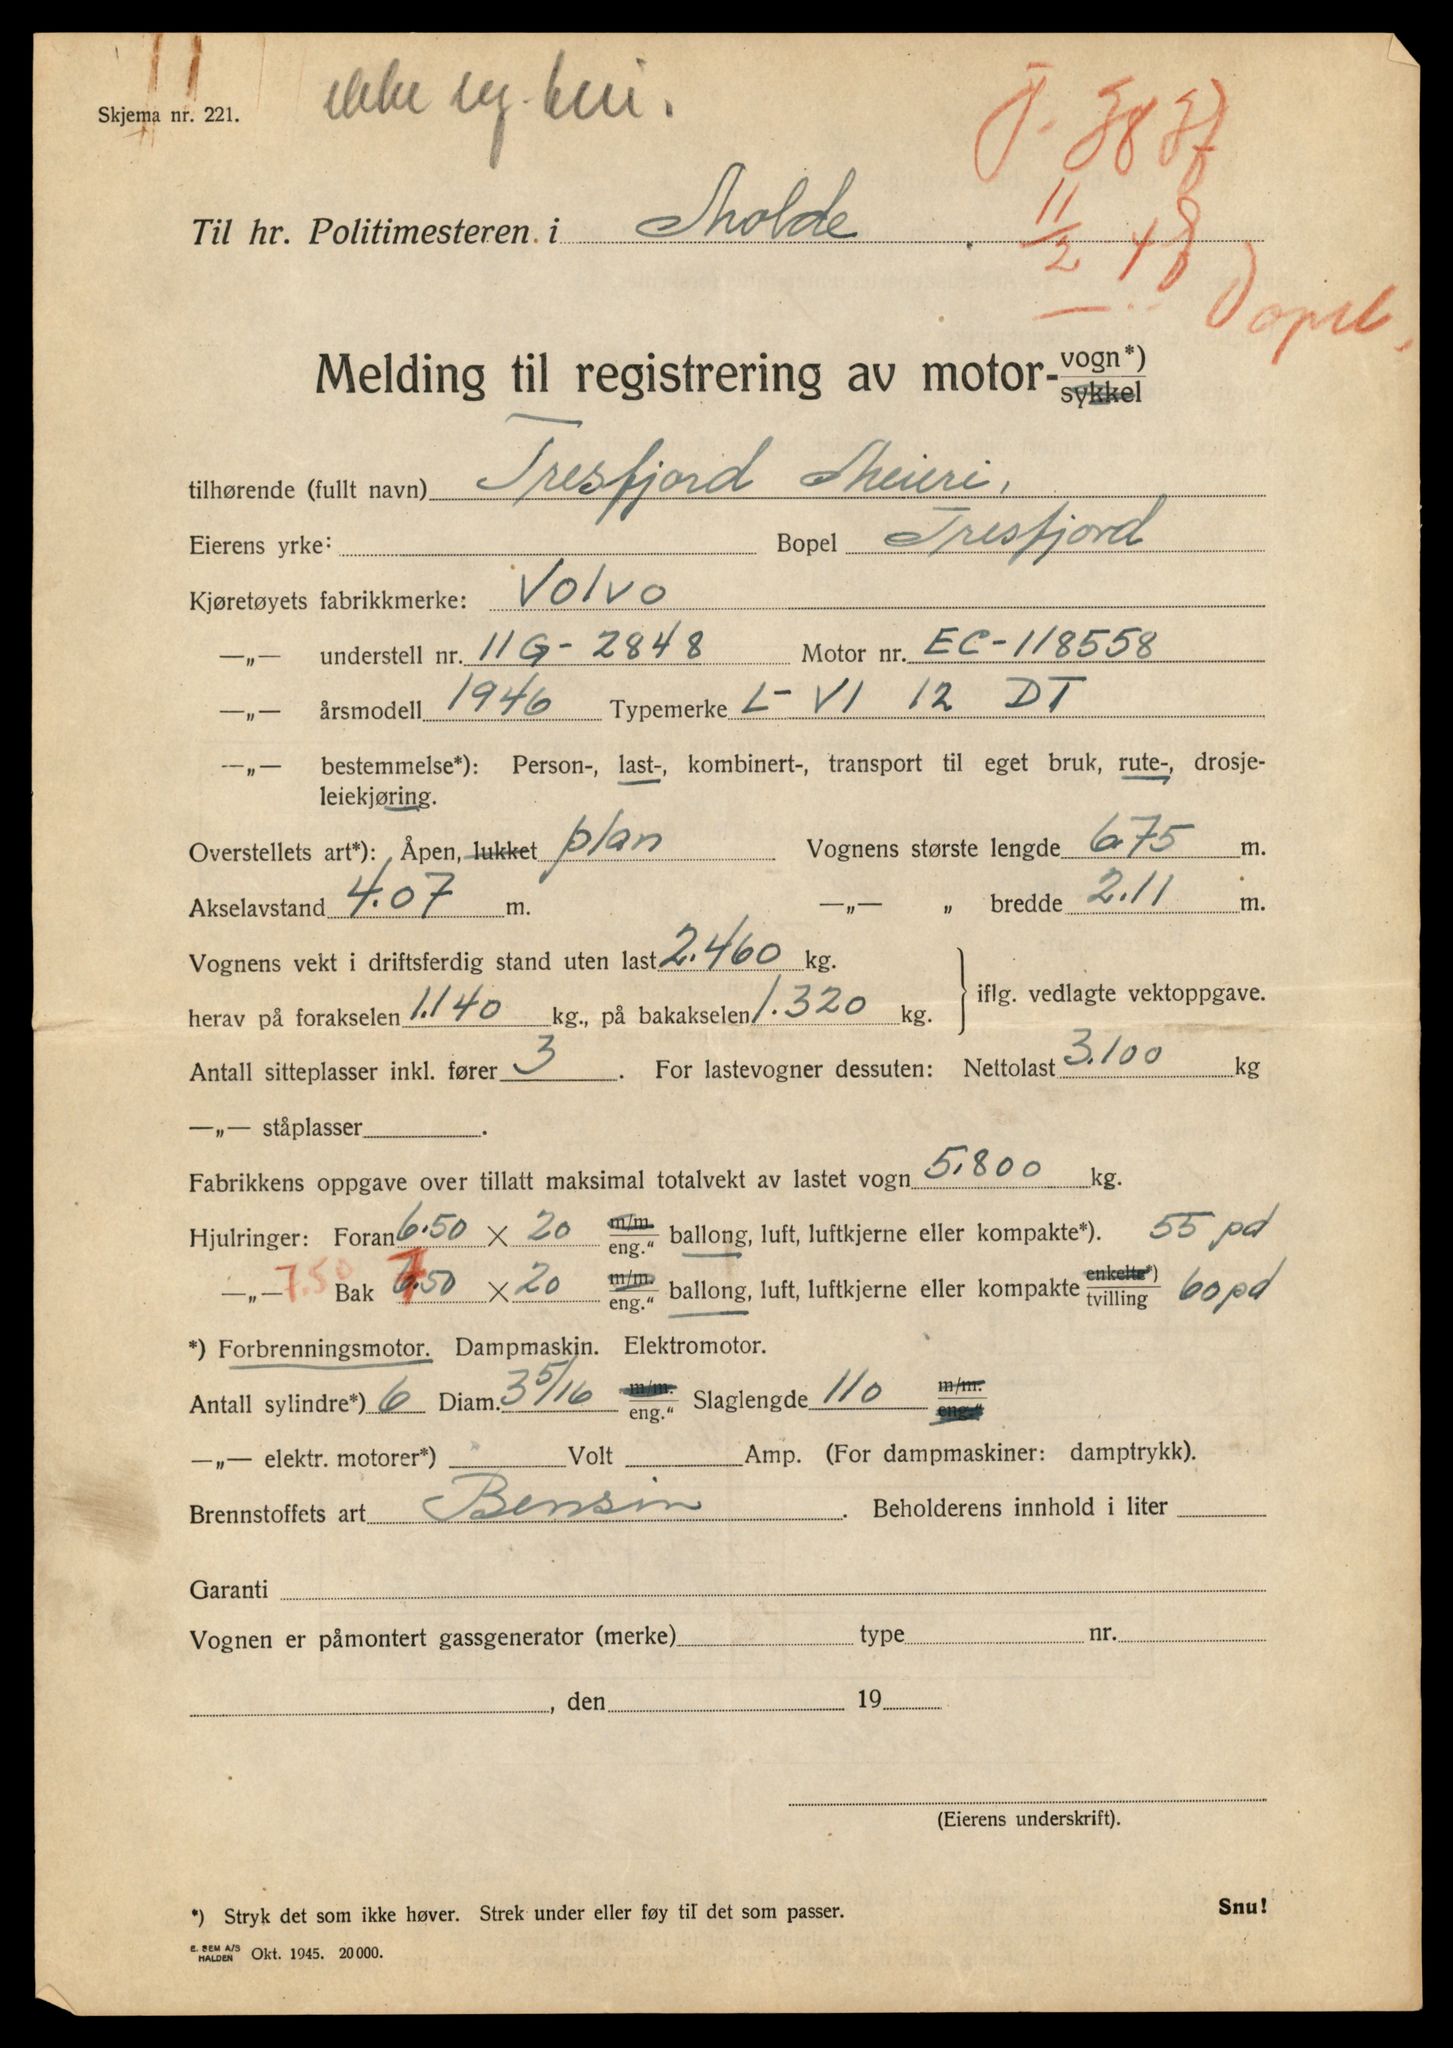 ikke reg. her.
Skjema nr. 221.
11/2 48
Til hr. Politimesteren i Molde
Dopel.
Melding til registrering av motor-vogn*)
sykkel
tilhørende (fullt navn) Tresfjord Meieri,
Eierens yrke: Bopel Tresfjord
Kjøretøyets fabrikkmerke: Volvo
—„— understell nr. 11G-2848 Motor nr. EC-118558
—„— årsmodell 1946 Typemerke L-VI 12 DT
—„— bestemmelse*): Person-, last-, kombinert-, transport til eget bruk, rute-, drosje-
leiekjøring.
Overstellets art*): Åpen, lukket plan Vognens største lengde 6.75 m.
Akselavstand 4.07 m. —„— „ bredde 2.11 m.
Vognens vekt i driftsferdig stand uten last 2.460 kg.
iflg. vedlagte vektoppgave.
herav på forakselen 1.140 kg., på bakakselen 1.320 kg.
Antall sitteplasser inkl. fører 3 . For lastevogner dessuten: Nettolast 3.100 kg
—„— ståplasser .
Fabrikkens oppgave over tillatt maksimal totalvekt av lastet vogn 5.800 kg.
Hjulringer: Foran 6.50 × 20 m/m. eng.“ ballong, luft, luftkjerne eller kompakte*). 55 pd
—„— 7.50 Bak 6.50 × 20 m/m. eng.“ ballong, luft, luftkjerne eller kompakte enkelte*) tvilling 60 pd
*) Forbrenningsmotor. Dampmaskin. Elektromotor.
Antall sylindre*) 6 Diam. 3 5/16 m/m. eng.“ Slaglengde 110 m/m. eng.“
—„— elektr. motorer*) Volt Amp. (For dampmaskiner: damptrykk).
Brennstoffets art Bensin . Beholderens innhold i liter
Garanti
Vognen er påmontert gassgenerator (merke) type nr.
, den 19
(Eierens underskrift).
Snu!
*) Stryk det som ikke høver. Strek under eller føy til det som passer.
E. SEM A/S HALDEN Okt. 1945. 20 000.